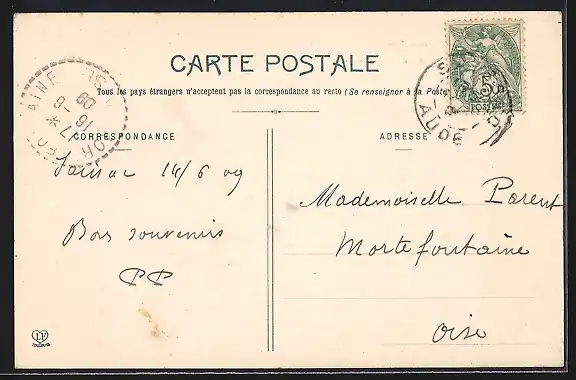 CARTE POSTALE
Tous les pays étrangers n'acceptent pas la correspondance au recto (Se renseigner à la Poste
CORRESPONDANCE
ADRESSE
14/6 09
Bons souvenirs
PP
Mademoiselle Parent
Mortefontaine
Oise
5
POSTES
AUDE
16
-6
09